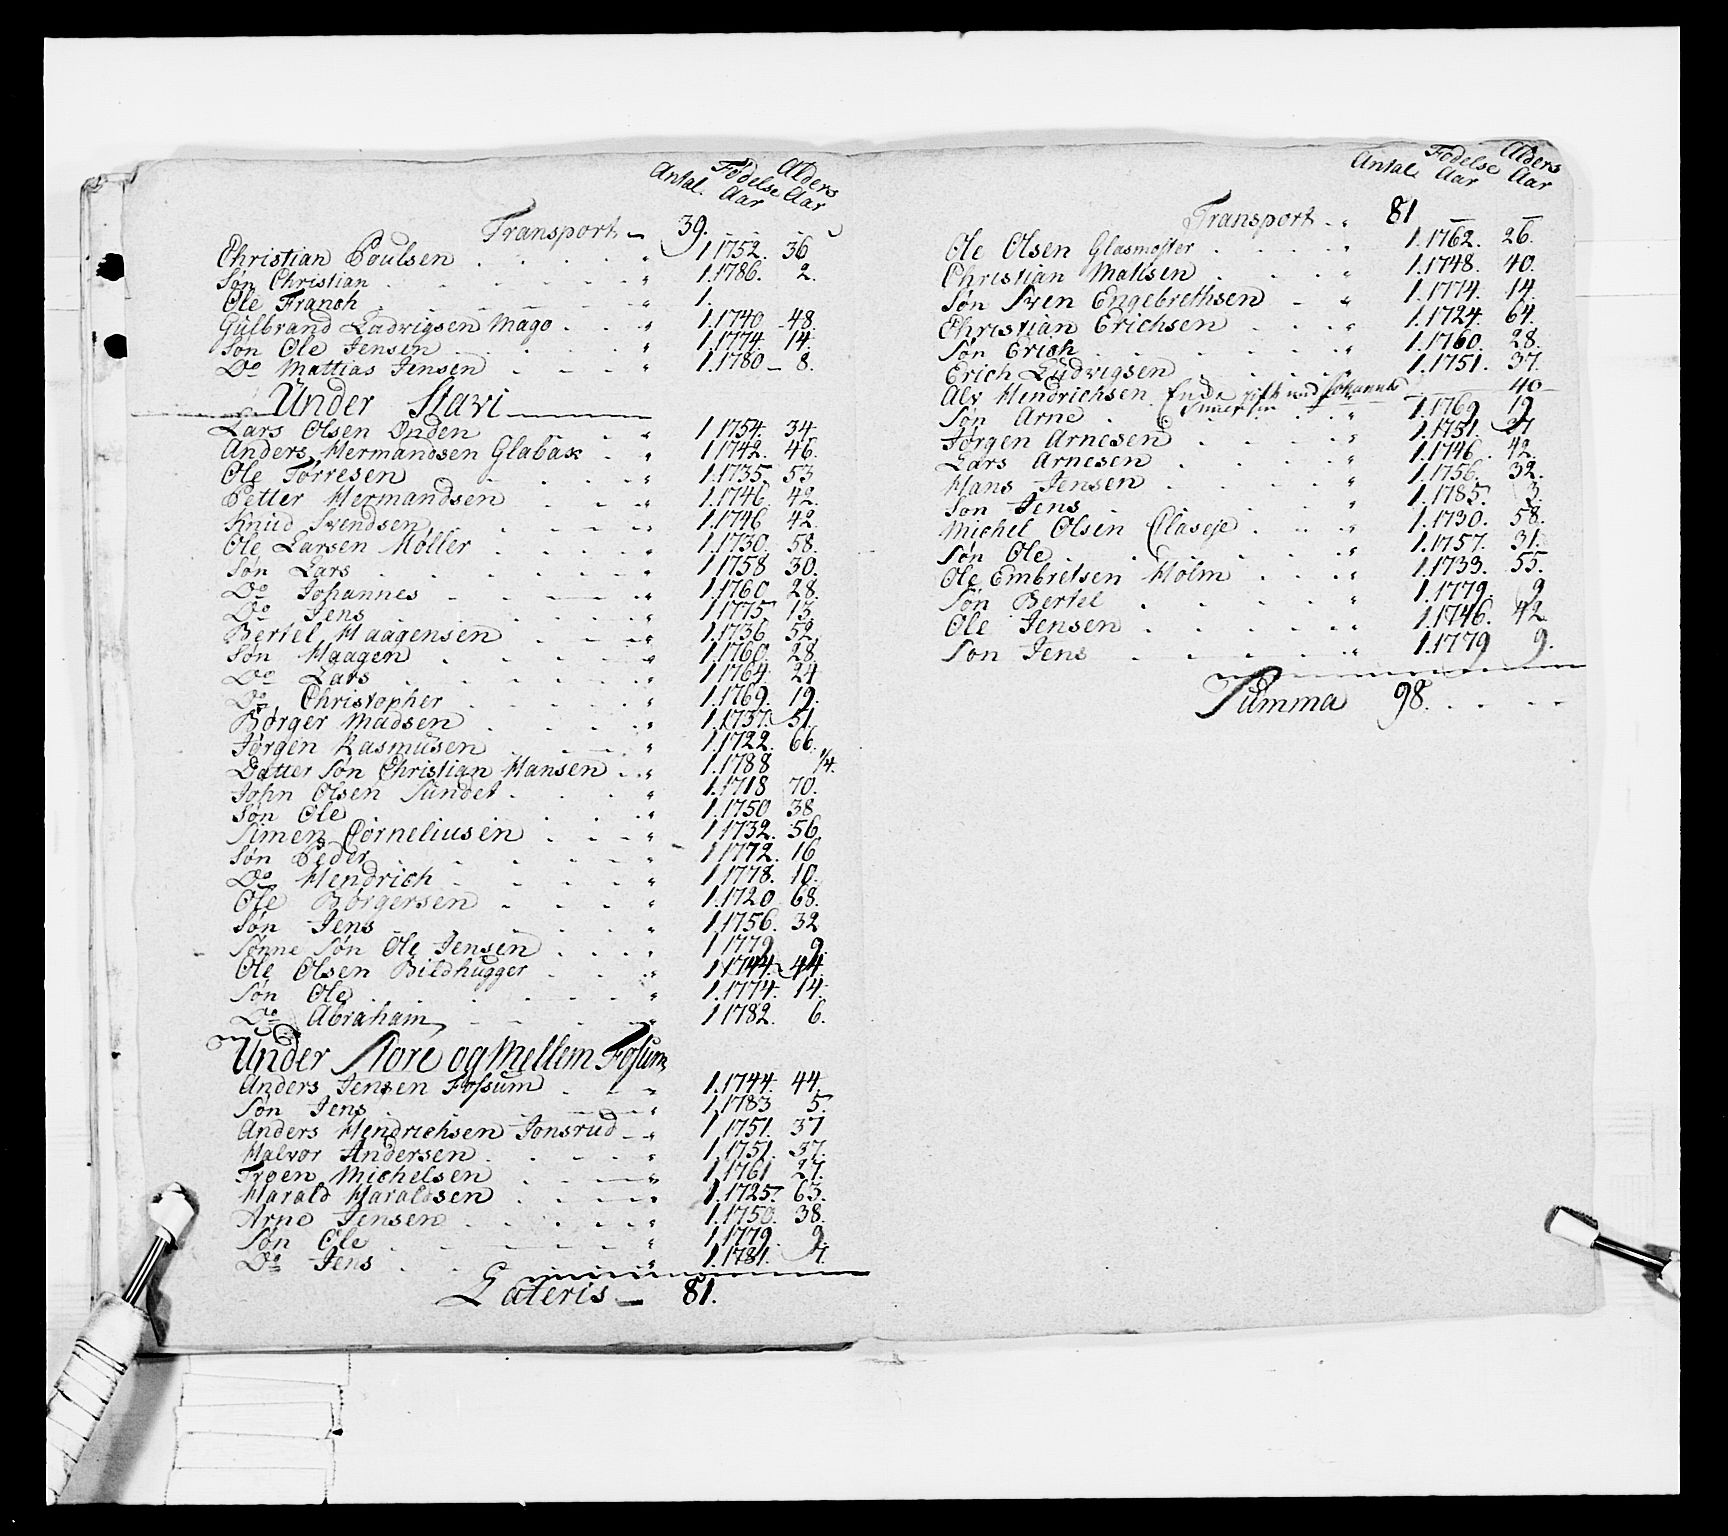 Antal. Fødelse Aar Alders Aar
Transport 39.
Christian Poulsen 1. 1752. 36
Søn Christian 1. 1786. 2.
Ole Franch 1.
Gulbrand Ludvigsen Mago 1. 1740 48.
Søn Ole Jensen 1. 1774. 14.
Do Mattias Jensen 1. 1780 8.
Under Stavi
Lars Olsen Onden 1 1754. 34
Anders Hermandsen Glabak 1 1742. 46.
Ole Tørresen 1. 1735. 53
Petter Hermandsen 1. 1746 42.
Knud Svendsen 1. 1746 42.
Ole Larsen Møller 1. 1730. 58.
Søn Lars 1 1758 30.
Do Johannes 1. 1760 28.
Do Jens 1. 1775 13
Bertel Haagensen 1. 1736 52.
Søn Haagen 1. 1760 28.
Do Lars 1 1764. 24
Do Christopher 1. 1769. 19.
Børger Madsen 1. 1737. 51.
Jørgen Rasmusen 1. 1722. 66.
Datter Søn Christian Hansen 1. 1788 1/4.
John Olsen Sundet 1. 1718 70.
Søn Ole 1. 1750 38.
Simen Corneliusen 1 1732. 56.
Søn Peder 1 1772. 16
Do Hendrich 1 1778. 10.
Ole Børgersen 1. 1720 68.
Søn Jens 1. 1756. 32
Sønne Søn Ole Jensen 1 1779 9.
Ole Olsen Bildhugger 1 1744. 44.
Søn Ole 1. 1774. 14.
Do Abraham 1 1782. 6.
Under Store og Mellem Fossum
Anders Jensen Fossum 1. 1744. 44.
Søn Jens 1. 1783 5.
Anders Hendrichsen Jonsrud 1 1751. 37
Halvor Andersen 1. 1751. 37.
Troen Michelsen 1. 1761 27.
Harald Haraldsen 1. 1725. 63.
Arne Jensen 1. 1750. 38.
Søn Ole 1. 1779. 9.
Do Jens 1. 1781. 7.
Lateris 81.
Antal. Fødelse Aar Alders Aar
Transport 81
Ole Olsen Glasmoster 1. 1762. 26.
Christian Matisen 1. 1748. 40.
Søn Sven Engebrethsen 1. 1774. 14.
Christian Erichsen 1. 1724. 64.
Søn Erich 1. 1760. 28.
Erich Ludvigsen 1. 1751. 37.
Alv Hindrichsen 40
Søn Arne 1. 1769 19
Jørgen Arnesen 1. 1751.
Lars Arnesen 1. 1746. 42.
Hans Jensen 1. 1756. 32.
Søn Jens 1. 1785. 3.
Michel Olsen Claseje 1. 1730. 58.
Søn Ole 1. 1757. 31.
Ole Embretsen Holm 1. 1733. 55.
Søn Bertel 1. 1779. 9
Ole Jensen 1. 1746. 42.
Søn Jens 1. 1779 9.
Summa 98.